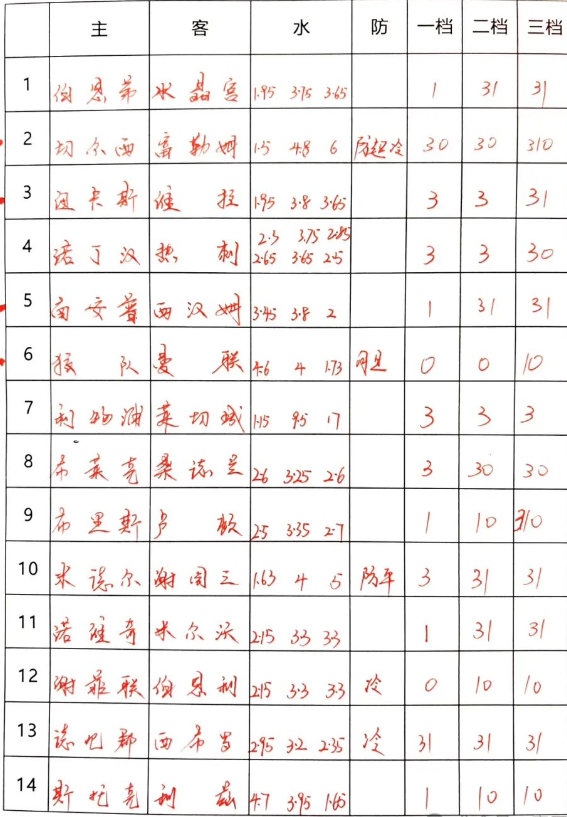 主 客 水 防 一档 二档 三档
1 伯恩第 水晶宫 1.95 3.75 3.65 1 31 31
2 切尔西 富勒姆 1.5 4.8 6 防超冷 30 30 310
3 纽卡斯 维拉 1.95 3.8 3.65 3 3 31
2.3 3.75 2.85
4 诺丁汉 热刺 2.65 3.65 2.5 3 3 30
5 南安普 西汉姆 3.45 3.8 2 1 31 31
6 狼队 曼联 4.6 4 1.73 0 0 10
7 利物浦 莱切城 1.15 9.5 17 3 3 3
8 布莱克 桑德兰 2.6 3.25 2.6 3 30 30
9 布里斯 卢顿 2.5 3.35 2.7 1 10 310
10 米德尔 谢周三 1.63 4 5 防平 3 31 31
11 诺维奇 米尔沃 2.15 3.3 3.3 1 31 31
12 谢菲联 伯恩利 2.15 3.3 3.3 冷 0 10 10
13 德比郡 西布罗 2.95 3.2 2.35 冷 31 31 31
14 斯托克 利兹 4.7 3.95 1.65 1 10 10